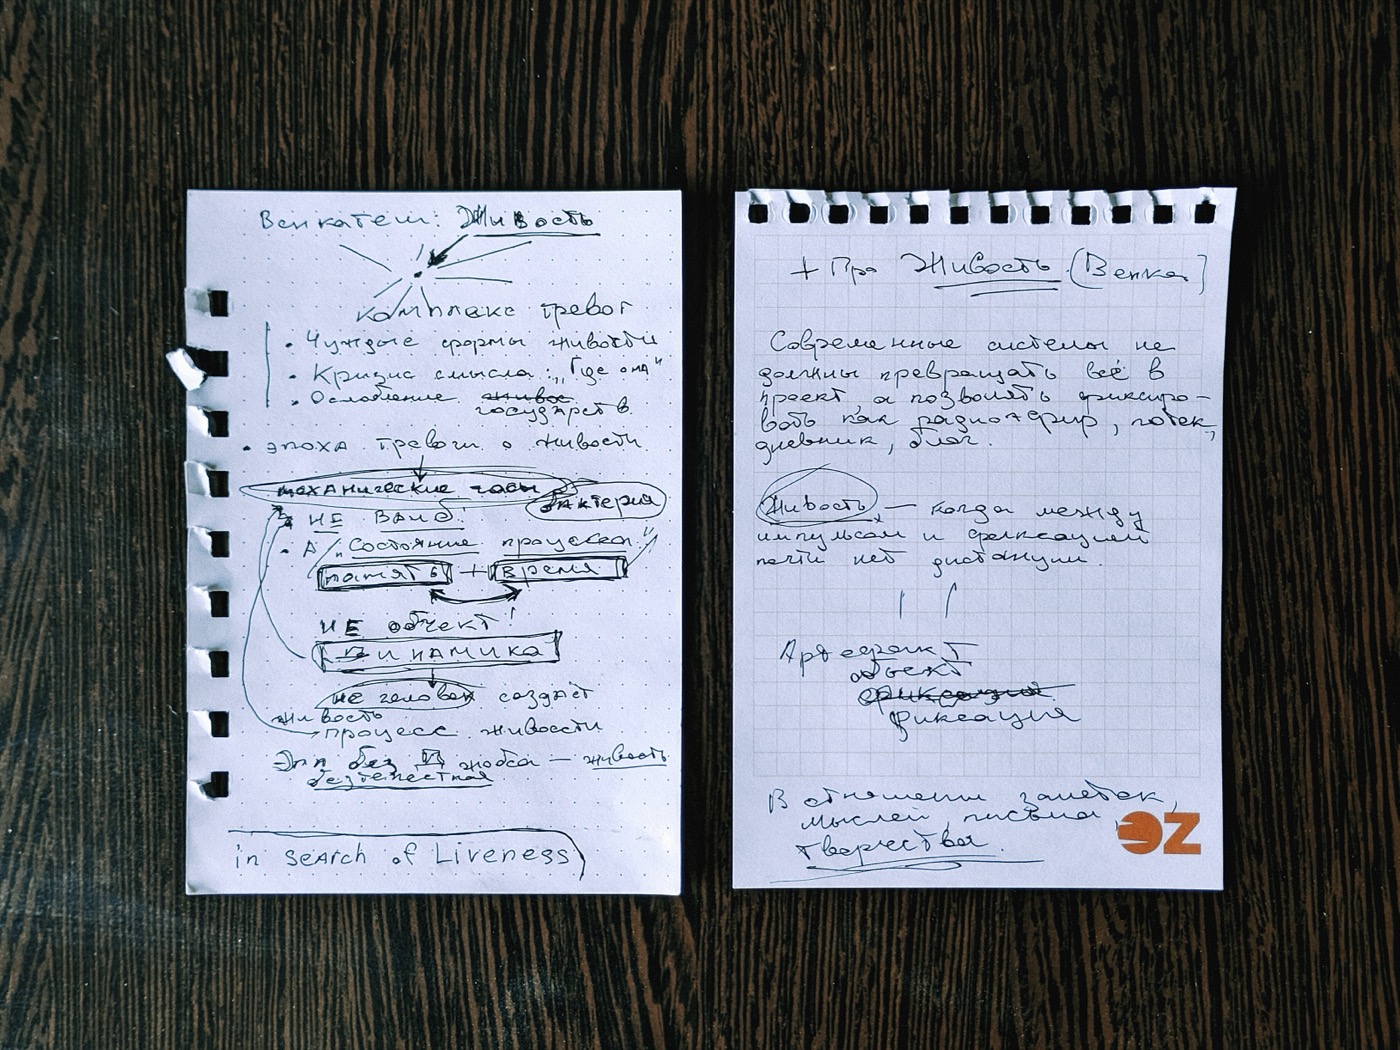 Венкатеш: Живость
комплекс тревог
• Чуждые формы живости
• Кризис смысла: „Где она"
• Ослабление живое
государств.
• эпоха тревоги о живости
механические часы
бактерия
• НЕ ВАЙБ!
• А „Состояние процесса"
память + время
НЕ объект!
Динамика
не человек создаёт
живость
процесс живости
без жабса — живость
безтелестная
in search of Liveness
+ Про Живость (Венка)
Современные системы не
должны превращать всё в
проект, а позволять фиксиро-
вать как радиоэфир, поток,
дневник, блог.
Живость — когда между
импульсом и фиксацией
почти нет дистанции.
Артефакт
объект
фиксация
фиксация
В отношении заметок,
мыслей, письма,
творчества.
ЭZ